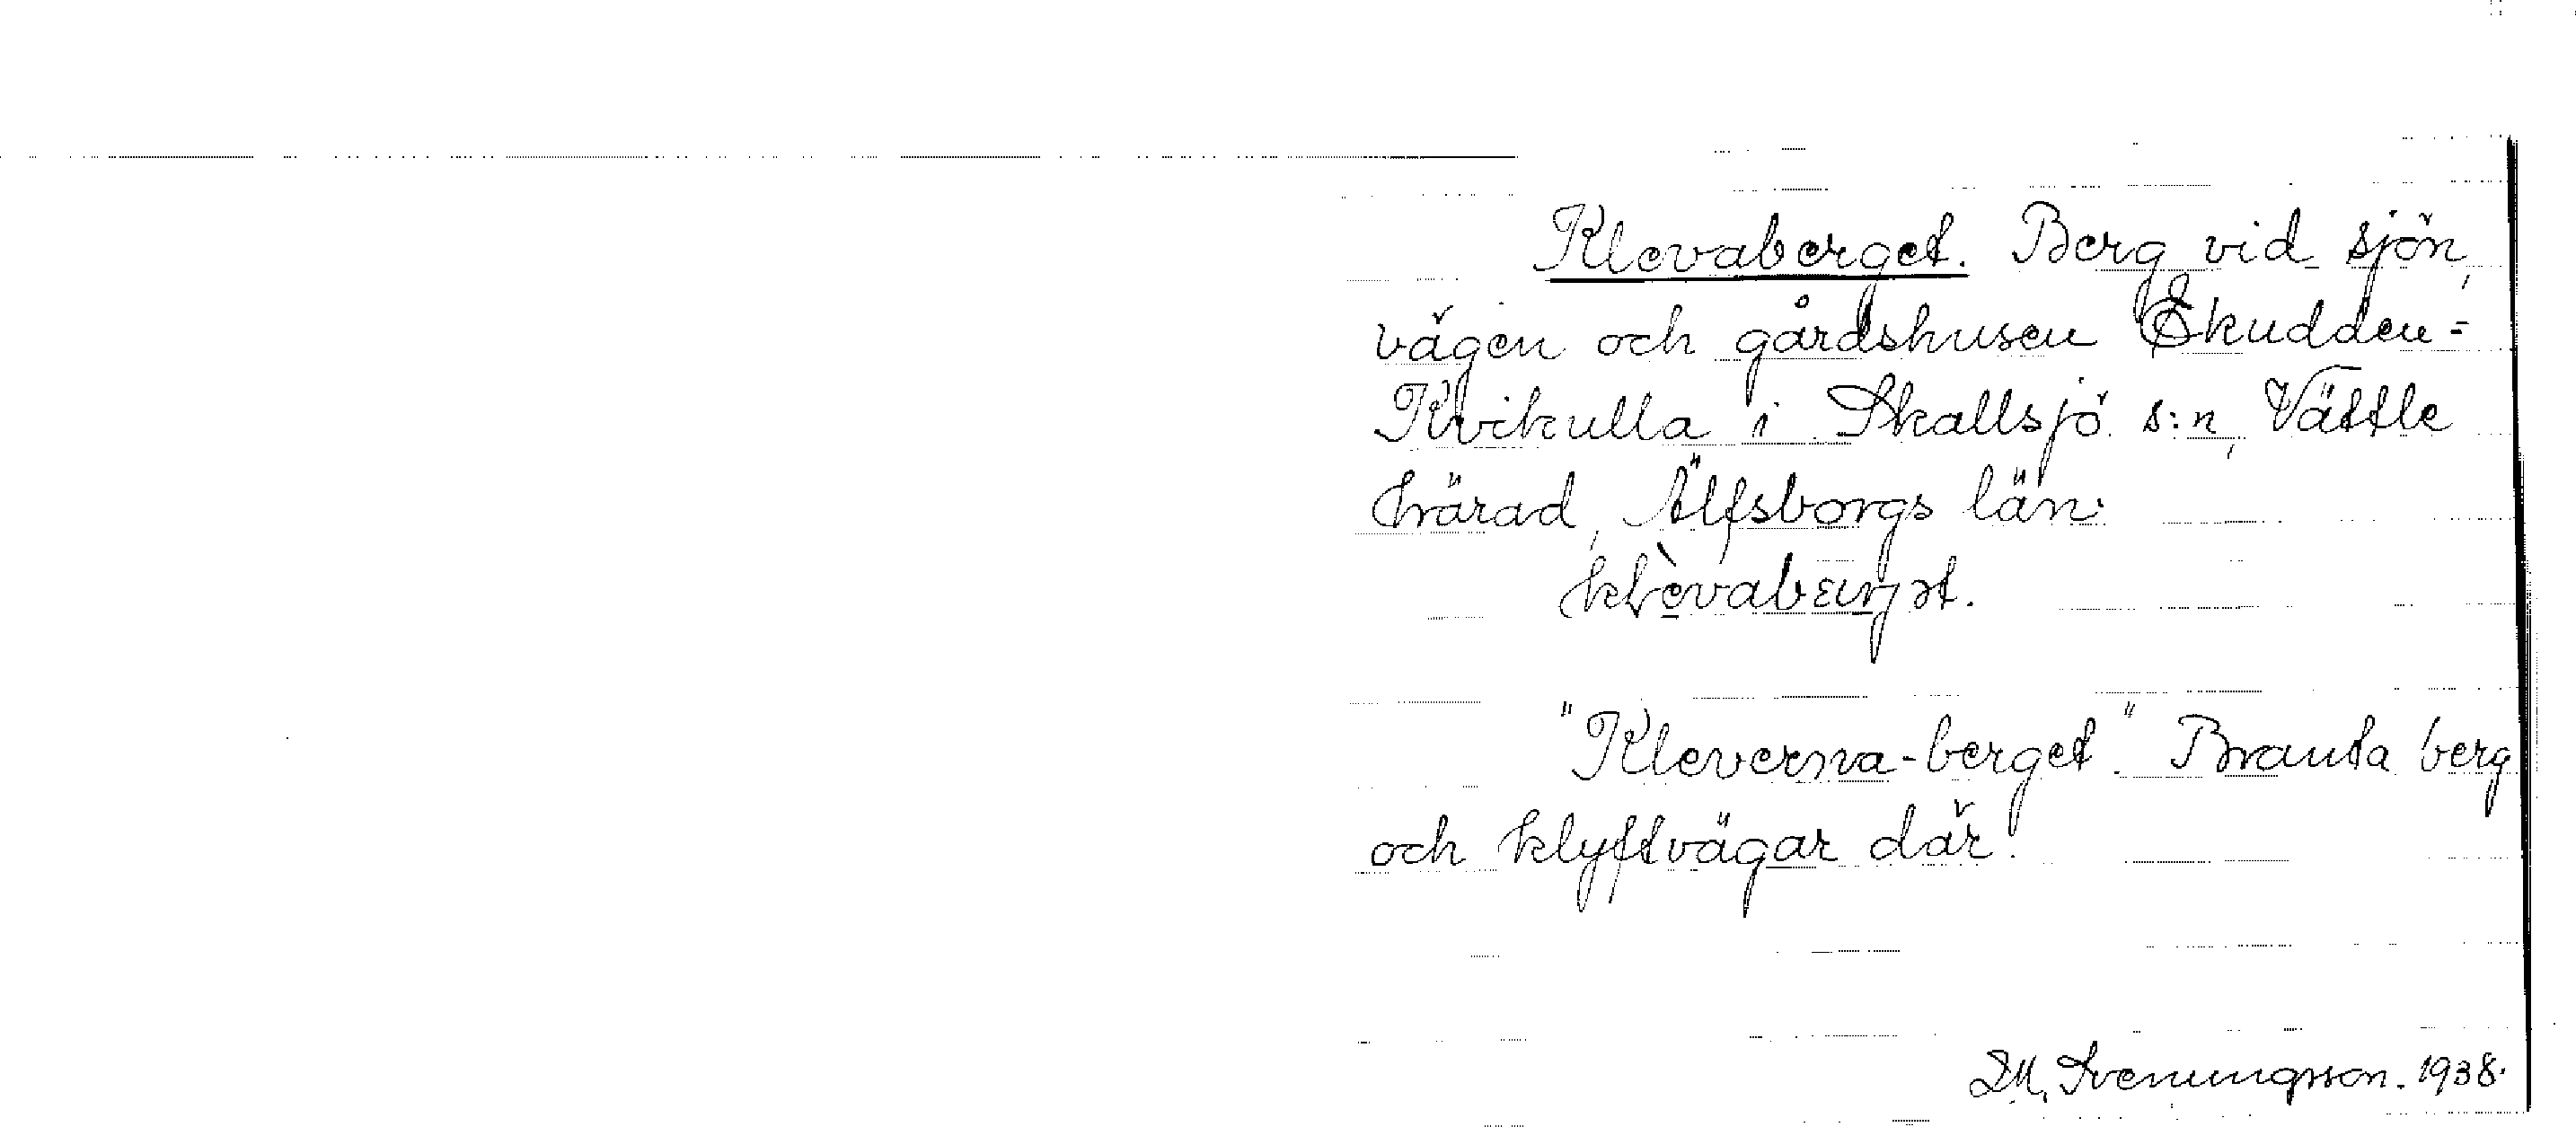 Klevaberget. Berg vid sjön,
vägen och gårdshusen Ekudden=
Kvikulla i Skallsjö s:n, Vättle
härad, Älfsborgs län.
"Kleverna-berget". Branta berg
och klyftvägar där.
Svenungsson. 1938.